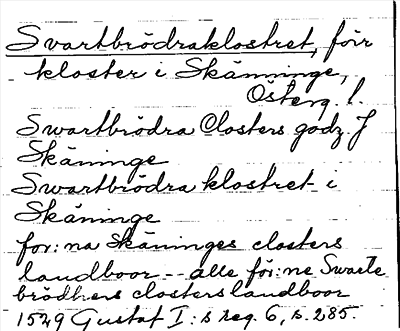 Svartbrödraklostret, förr
kloster i Skänninge,
Österg. l.
Swartbrödra Closters godz J
Skäninge
Swartbrödra klostret i
Skäninge
for:na Skäninges closters
landboor -- alle för:ne Swarte
brödhers closters landboor
1549 Gustaf I:s reg. 6, s. 285.